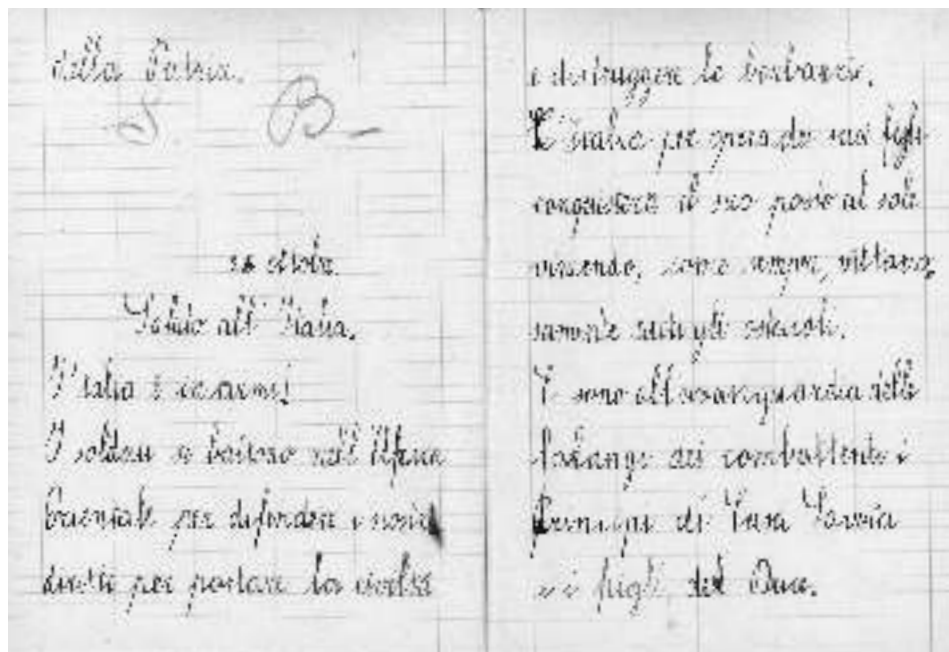 della Patria.
B
ottobre
Saluto all'Italia.
L'Italia è in armi!
I soldati si battono nell'Africa
Orientale per difendere i nostri
diritti per portare la civiltà
e distruggere la barbarie.
L'Italia per opera dei suoi figli
conquisterà il suo posto al sole
vincendo, come sempre, vittorio-
samente tutti gli ostacoli.
E sono all'avanguardia delle
falangi dei combattenti i
Principi di Casa Savoia
e i figli del Duce.